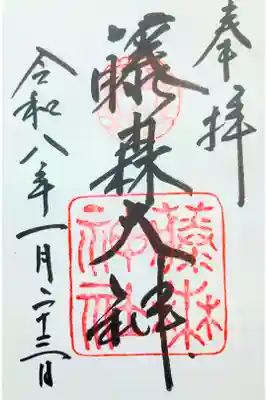 奉拝
藤森大神
藤森
神社
令和八年一月二十三日